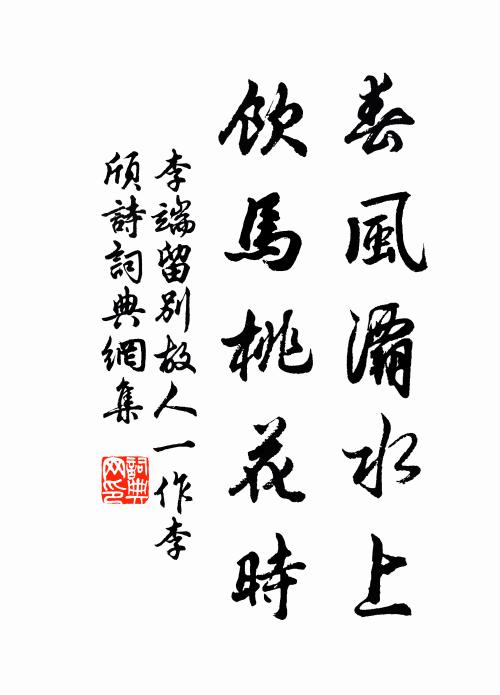 春風灞水上
飲馬桃花時
李端留別故人一作李
頎詩詞典網集
詞典
网印